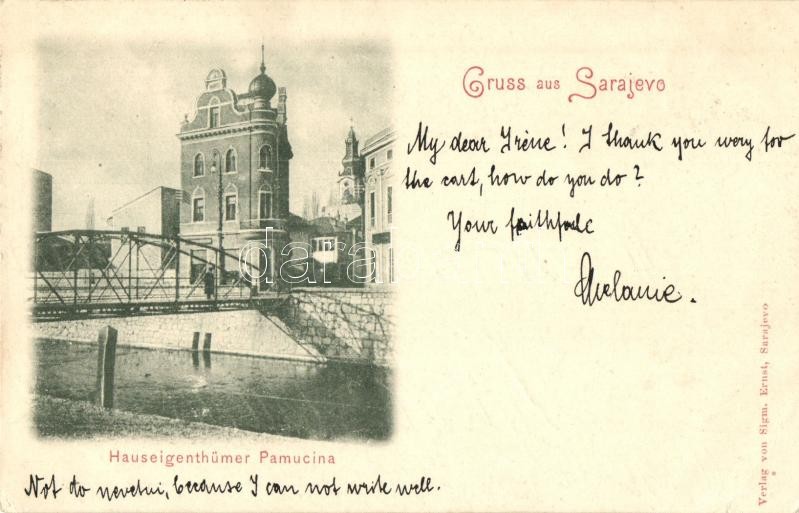 Gruss aus Sarajevo
My dear Irène! I thank you wery for
the cart, how do you do?
Your faithfule
Melanie.
Hauseigenthümer Pamucina
Not do nevetni, because I can not write well.
Verlag von Sigm. Ernst, Sarajevo
darabanth